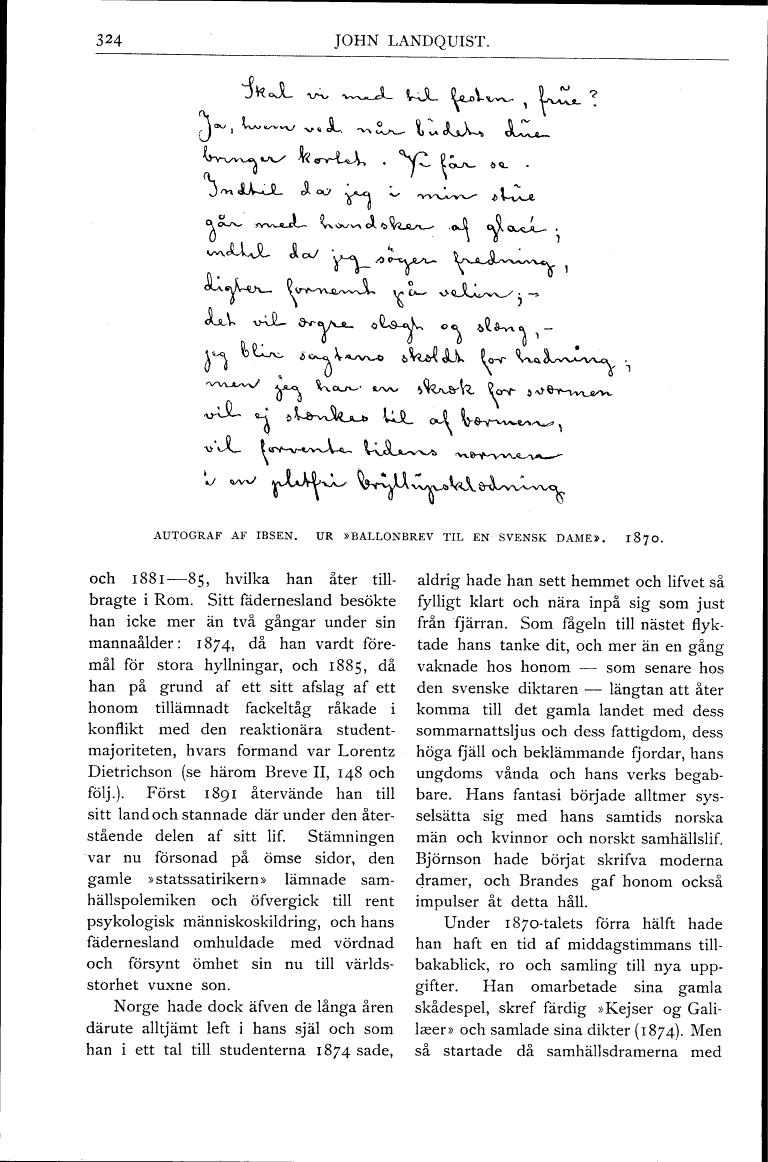 324
JOHN LANDQUIST.
Skal vi med til festen, frue?
Ja, hvem ved når budets due
bringer kortet. Vi får se.
Indtil da jeg i min stue
går med handsker af glacé;
indtil da jeg söger fredning,
digter fornemt på velin; –
det vil ærgre slægt og slæng, –
jeg blir sagtens skoldt for hadning;
men jeg har en skræk for sværmen
vil ej stænkes til af bærmen,
vil forvente tidens normen
i en pletfri bryllupsklædning
AUTOGRAF AF IBSEN. UR »BALLONBREV TIL EN SVENSK DAME». 1870.
och 1881—85, hvilka han åter till-
bragte i Rom. Sitt fädernesland besökte
han icke mer än två gångar under sin
mannaålder: 1874, då han vardt före-
mål för stora hyllningar, och 1885, då
han på grund af ett sitt afslag af ett
honom tillämnadt fackeltåg råkade i
konflikt med den reaktionära student-
majoriteten, hvars formand var Lorentz
Dietrichson (se härom Breve II, 148 och
följ.). Först 1891 återvände han till
sitt land och stannade där under den åter-
stående delen af sitt lif. Stämningen
var nu försonad på ömse sidor, den
gamle »statssatirikern» lämnade sam-
hällspolemiken och öfvergick till rent
psykologisk människoskildring, och hans
fädernesland omhuldade med vördnad
och försynt ömhet sin nu till världs-
storhet vuxne son.
Norge hade dock äfven de långa åren
därute alltjämt left i hans själ och som
han i ett tal till studenterna 1874 sade,
aldrig hade han sett hemmet och lifvet så
fylligt klart och nära inpå sig som just
från fjärran. Som fågeln till nästet flyk-
tade hans tanke dit, och mer än en gång
vaknade hos honom — som senare hos
den svenske diktaren — längtan att åter
komma till det gamla landet med dess
sommarnattsljus och dess fattigdom, dess
höga fjäll och beklämmande fjordar, hans
ungdoms vånda och hans verks begab-
bare. Hans fantasi började alltmer sys-
selsätta sig med hans samtids norska
män och kvinnor och norskt samhällslif.
Björnson hade börjat skrifva moderna
dramer, och Brandes gaf honom också
impulser åt detta håll.
Under 1870-talets förra hälft hade
han haft en tid af middagstimmans till-
bakablick, ro och samling till nya upp-
gifter. Han omarbetade sina gamla
skådespel, skref färdig »Kejser og Gali-
læer» och samlade sina dikter (1874). Men
så startade då samhällsdramerna med